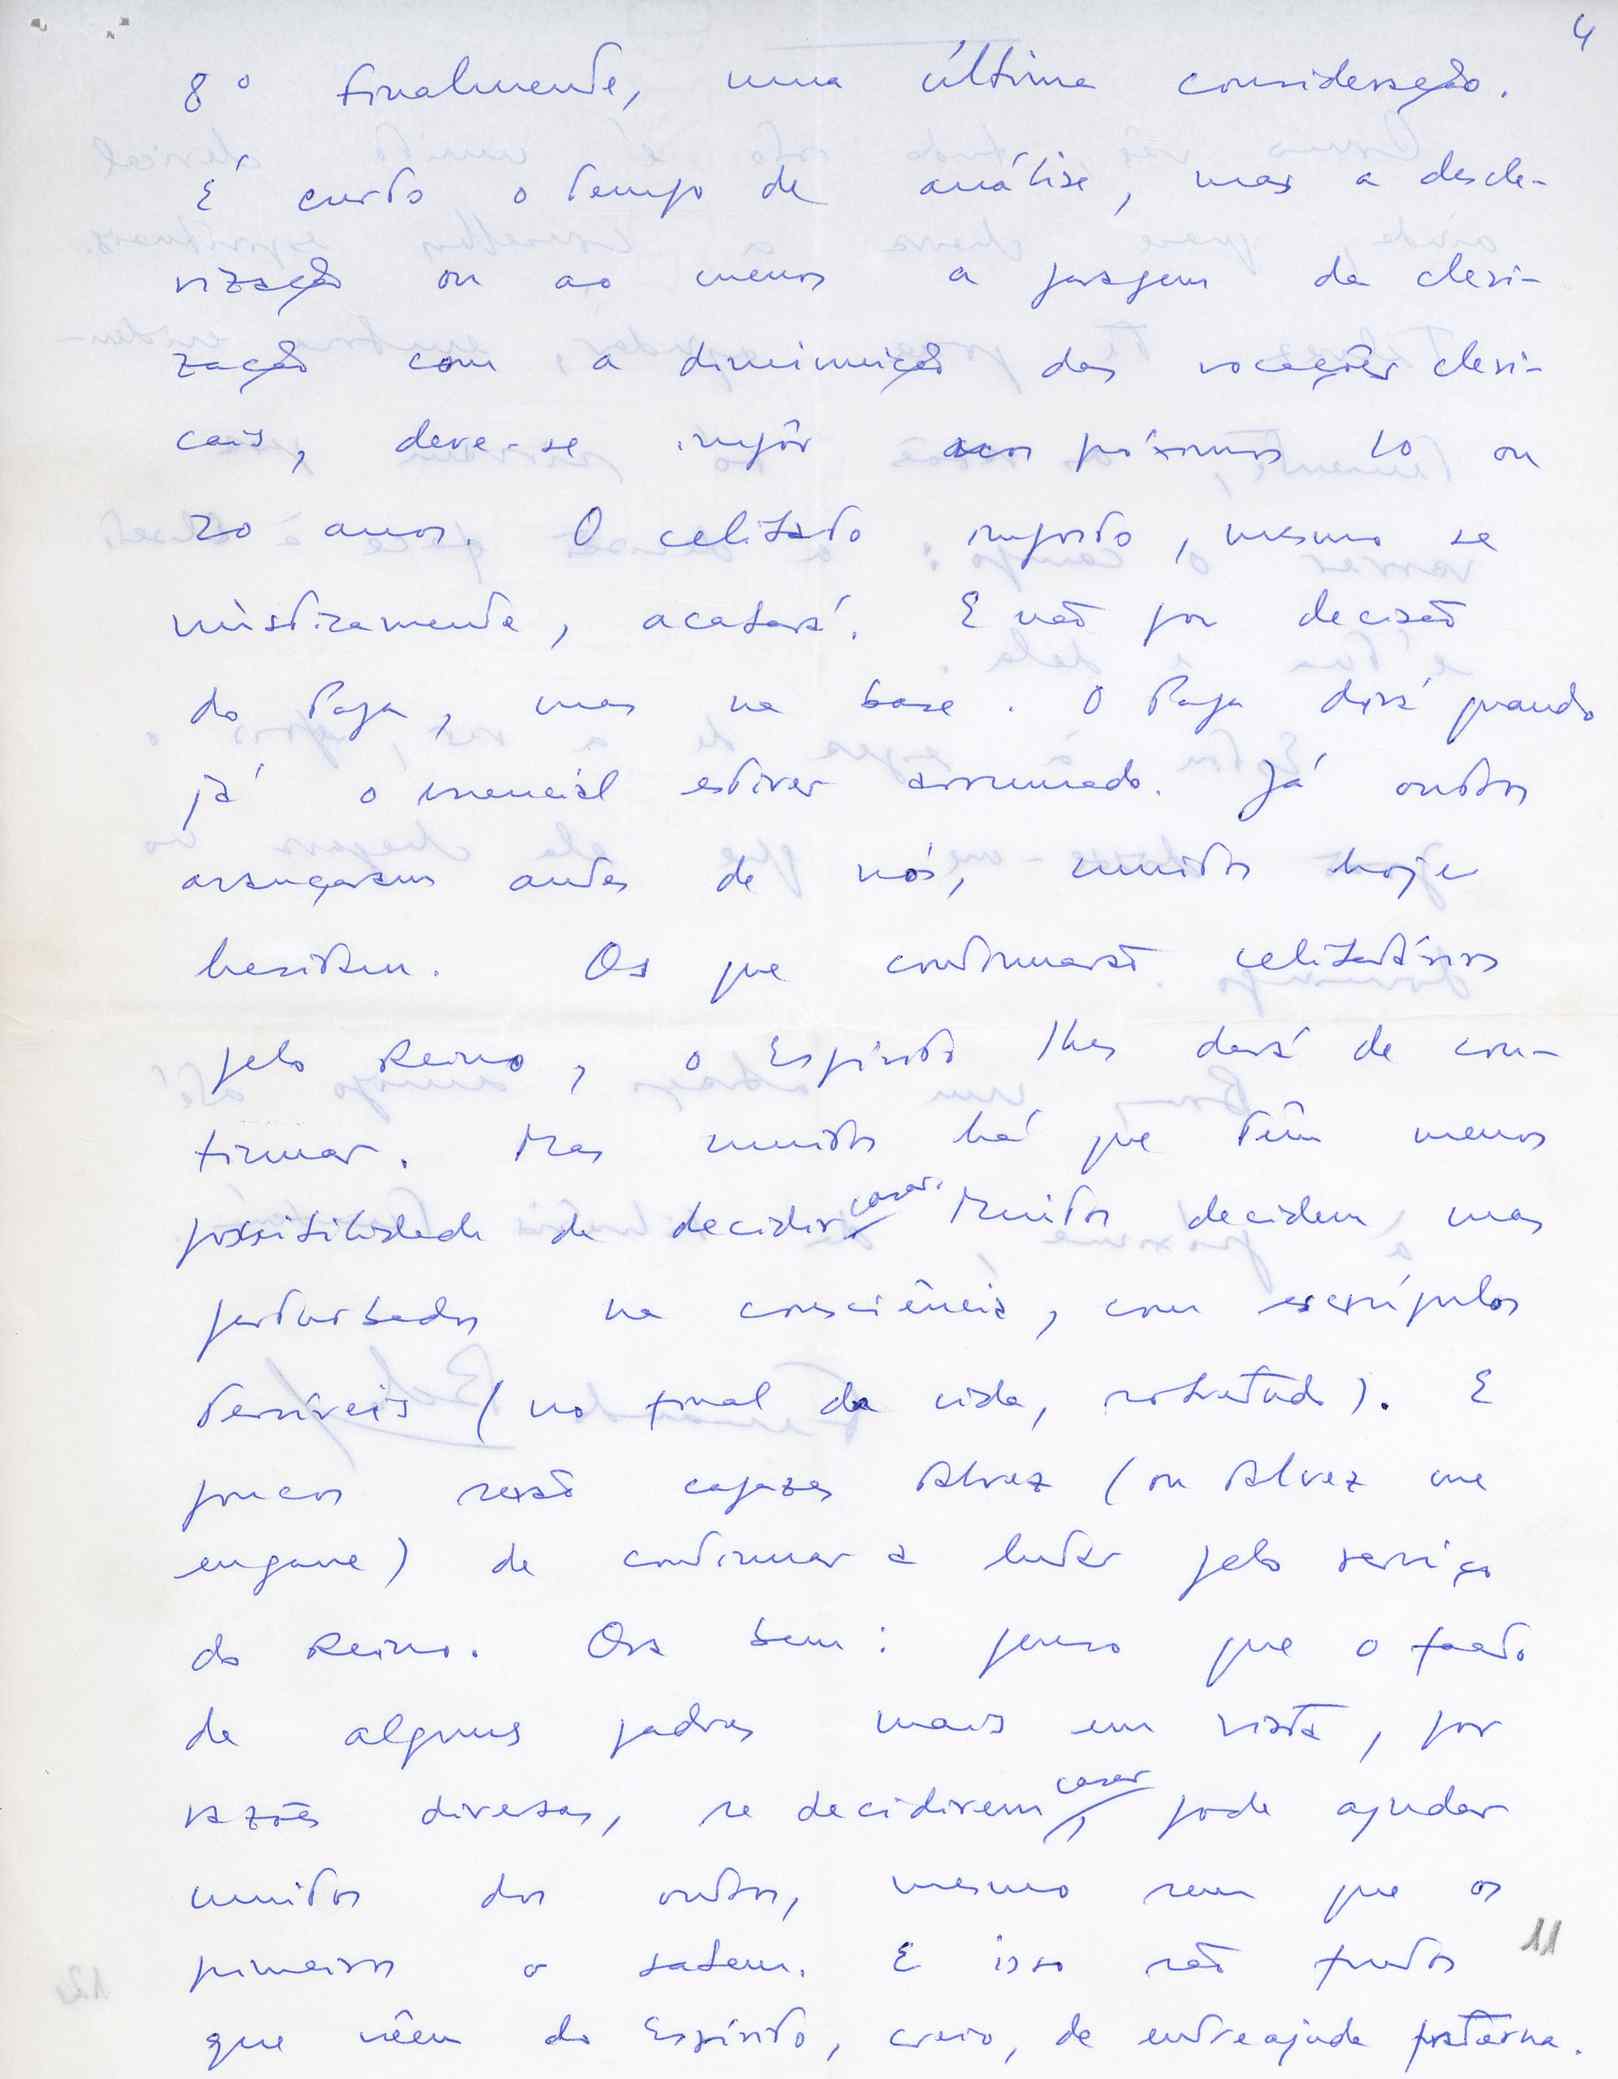 4
8º finalmente, uma última consideração.
É curto o tempo de análise, mas a descle-
rização ou ao menos a paragem da cleri-
zação com a diminuição das vocações cleri-
cais, deve-se impôr nos próximos 10 ou
20 anos. O celibato imposto, mesmo se
misticamente, acabará. E não por decisão
do Papa, mas na base. O Papa dirá quando
já o essencial estiver arrumado. Já outros
avançaram antes de nós, muitos hoje
hesitam. Os que continuarão celibatários
pelo Reino, o Espírito lhes dará de con-
tinuar. Mas muitos há que têm menos
possibilidade de decidir casar. Muitos decidem, mas
perturbados na consciência, com escrúpulos
terríveis (no final da vida, sobretudo). E
poucos serão capazes talvez (ou talvez me
engane) de continuar a lutar pelo serviço
do Reino. Ora bem: penso que o facto
de alguns padres mais em vista, por
razões diversas, se decidirem casar, pode ajudar
muitos dos outros, mesmo sem que os
primeiros o sabem. E isso são frutos
que vêem do Espírito, creio, de entreajuda fraterna.
11